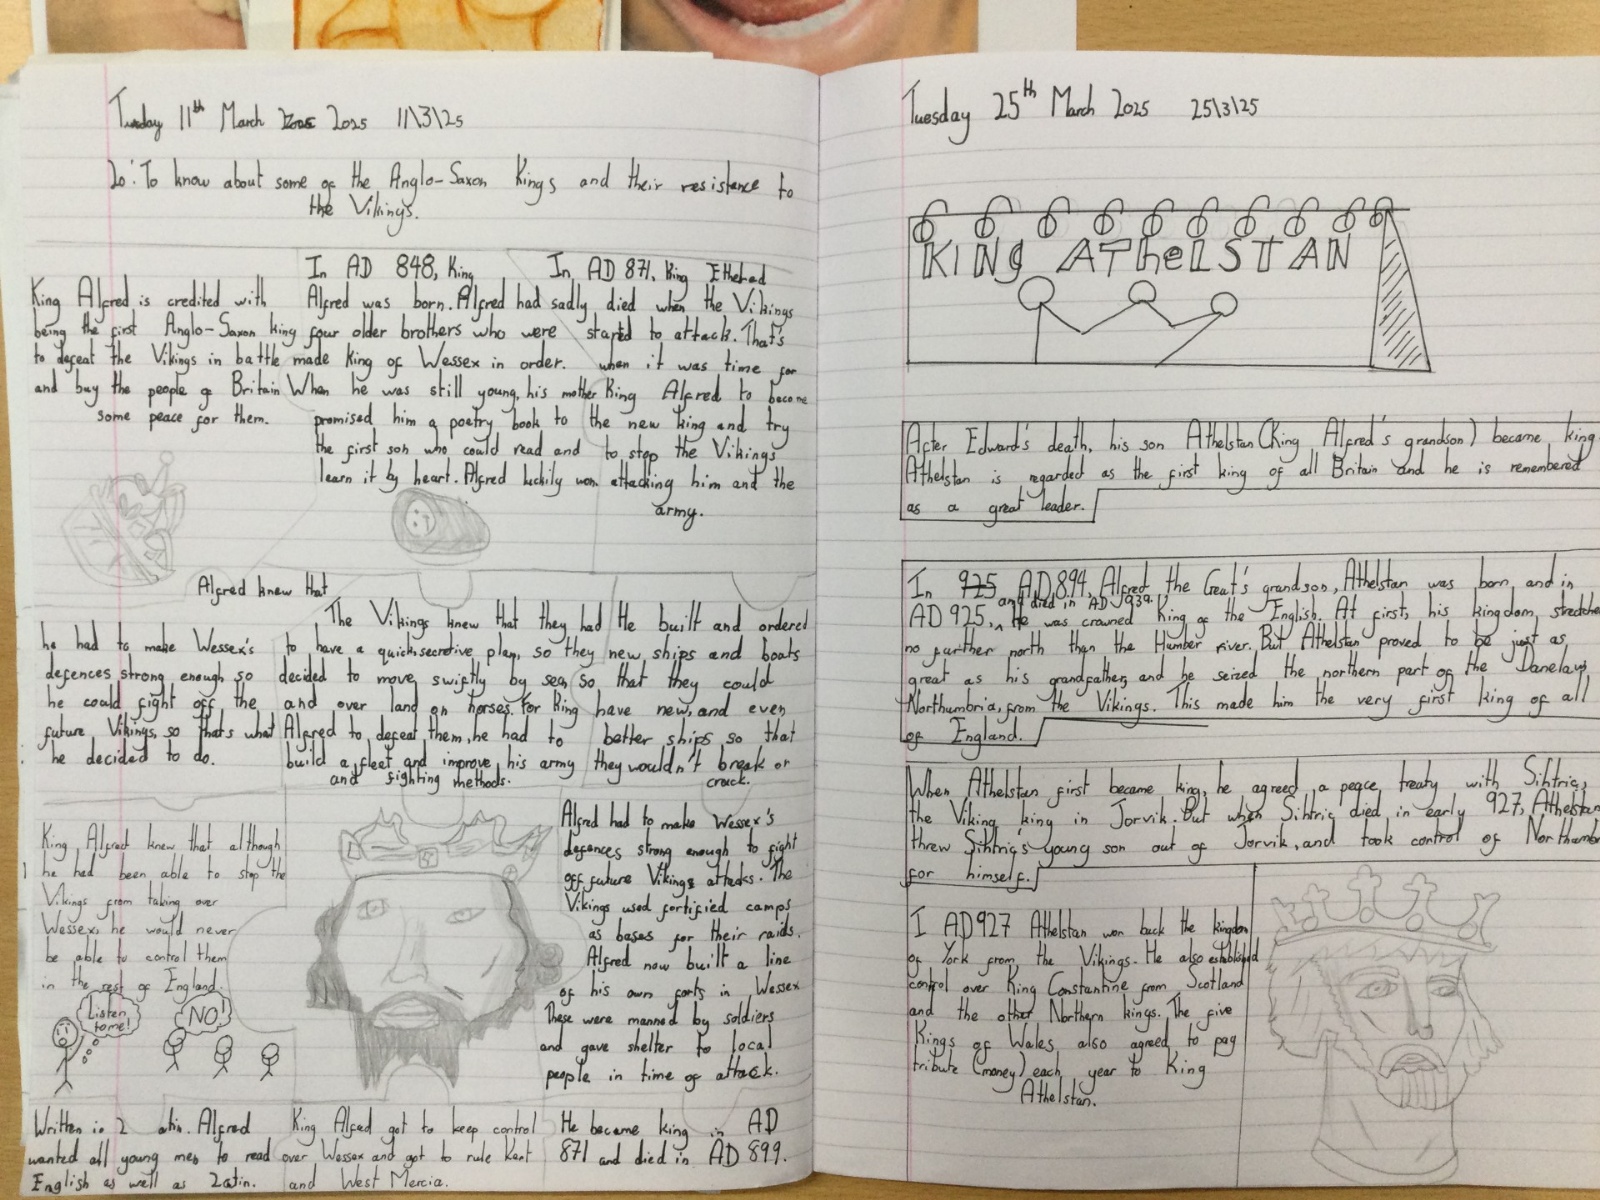 Tuesday 11th March 2025 11\3\25
Lo: To know about some of the Anglo-Saxon Kings and their resistance to
the Vikings.
King Alfred is credited with
being the first Anglo-Saxon king
to defeat the Vikings in battle
and buy the people of Britain
some peace for them.
In AD 848, King
Alfred was born. Alfred had
four older brothers who were
made king of Wessex in order.
When he was still young, his mother
promised him a poetry book to
the first son who could read and
learn it by heart. Alfred luckily won.
In AD 871, King Ethelred
sadly died when the Vikings
started to attack. That's
when it was time for
King Alfred to become
the new king and try
to stop the Vikings
attacking him and the
army.
Alfred knew that
he had to make Wessex's
defences strong enough so
he could fight off the
future Vikings, so that's what
he decided to do.
The Vikings knew that they had
to have a quick, secretive plan, so they
decided to move swiftly by sea,
and over land on horses. For King
Alfred to defeat them, he had to
build a fleet and improve his army
and fighting methods.
He built and ordered
new ships and boats
so that they could
have new, and even
better ships so that
they wouldn't break or
crack.
King Alfred knew that although
he had been able to stop the
Vikings from taking over
Wessex, he would never
be able to control them
in the rest of England.
Listen
to me!
NO!
Alfred had to make Wessex's
defences strong enough to fight
off future Vikings attacks. The
Vikings used fortified camps
as bases for their raids.
Alfred now built a line
of his own forts in Wessex
These were manned by soldiers
and gave shelter to local
people in time of attack.
Written in Latin. Alfred
wanted all young men to read
English as well as Latin.
King Alfred got to keep control
over Wessex and got to rule Kent
and West Mercia.
He became king in AD
871 and died in AD 899.
Tuesday 25th March 2025 25\3\25
KING AThelSTAN
After Edward's death, his son Athelstan (King Alfred's grandson) became king.
Athelstan is regarded as the first king of all Britain and he is remembered
as a great leader.
In 925 AD 894, Alfred the Great's grandson, Athelstan was born, and in
and died in AD 939.
AD 925, he was crowned King of the English. At first, his kingdom, stretched
no further north than the Humber river. But Athelstan proved to be just as
great as his grandfather, and he seized the northern part of the Danelaw,
Northumbria, from the Vikings. This made him the very first king of all
of England.
When Athelstan first became king, he agreed a peace treaty with Sihtric,
the Viking king in Jorvik. But when Sihtric died in early 927, Athelstan
threw Sihtrigs young son out of Jorvik, and took control of
for himself.
I AD927 Athelstan won back the kingdom
of York from the Vikings. He also established
control over King Constantine from Scotland
and the other Northern kings. The five
Kings of Wales also agreed to pay
tribute (money) each year to King
Athelstan.